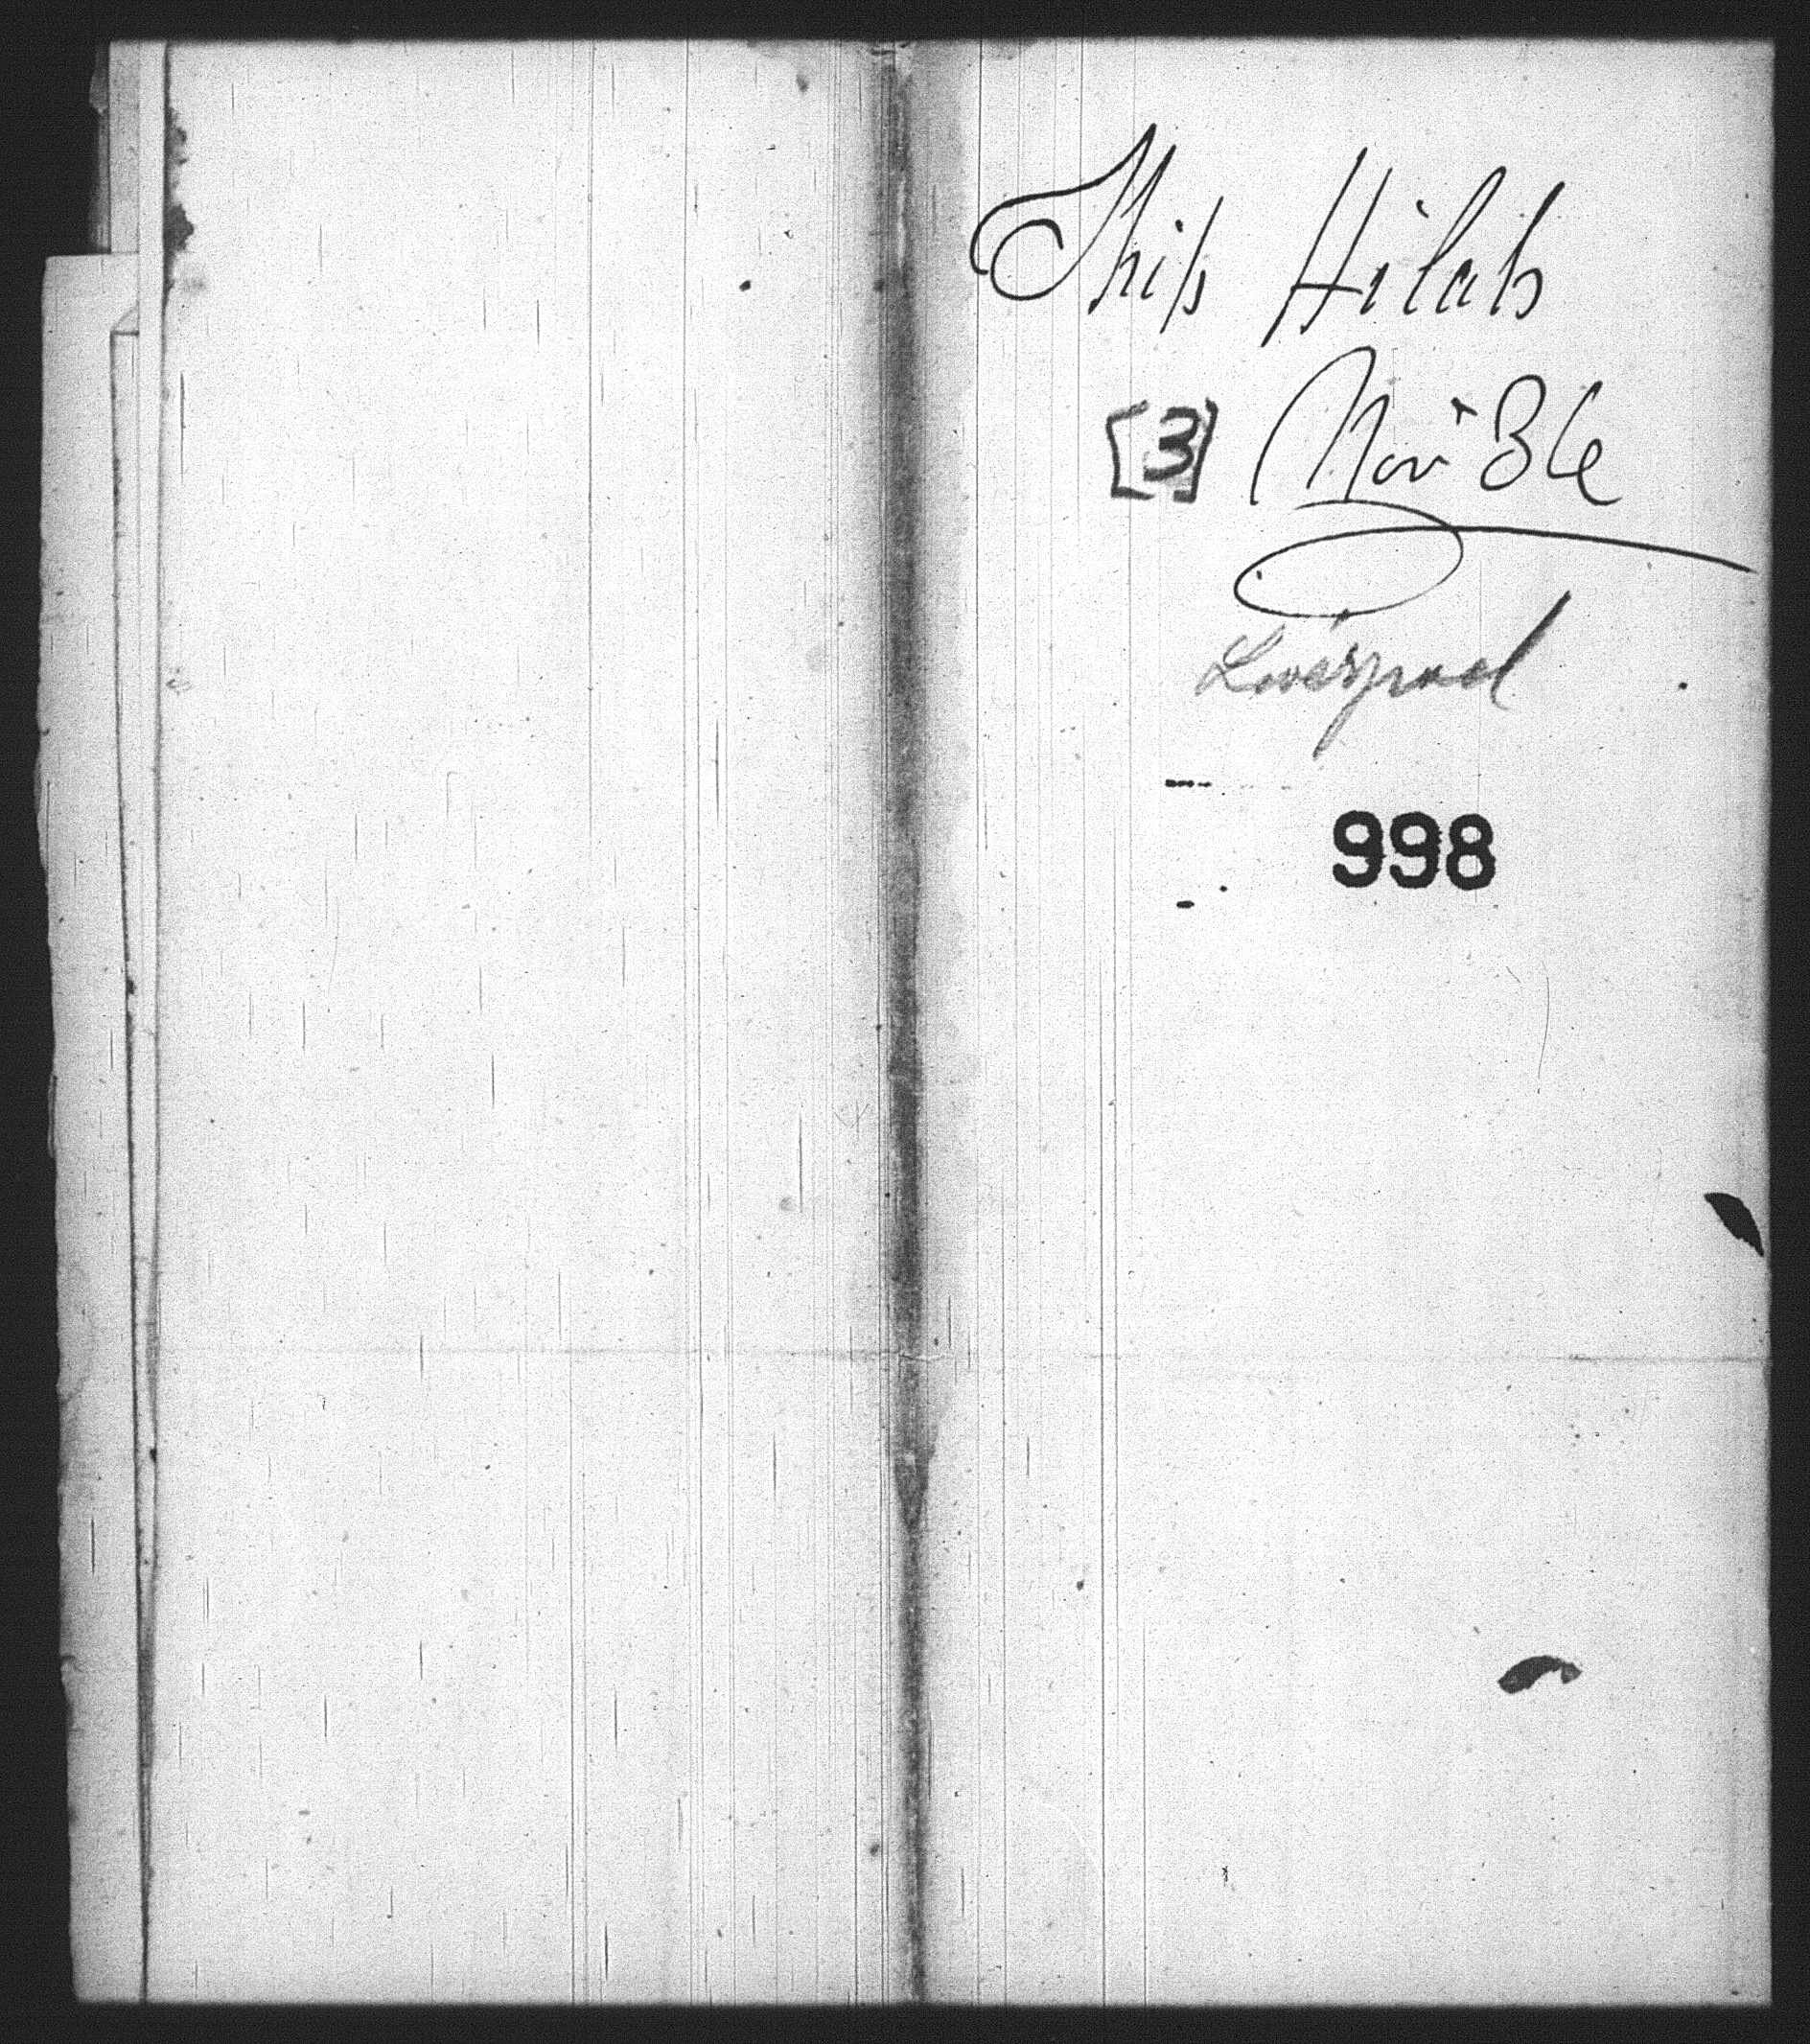 Ship Hilah
[3] Nov 36
Liverpool
998